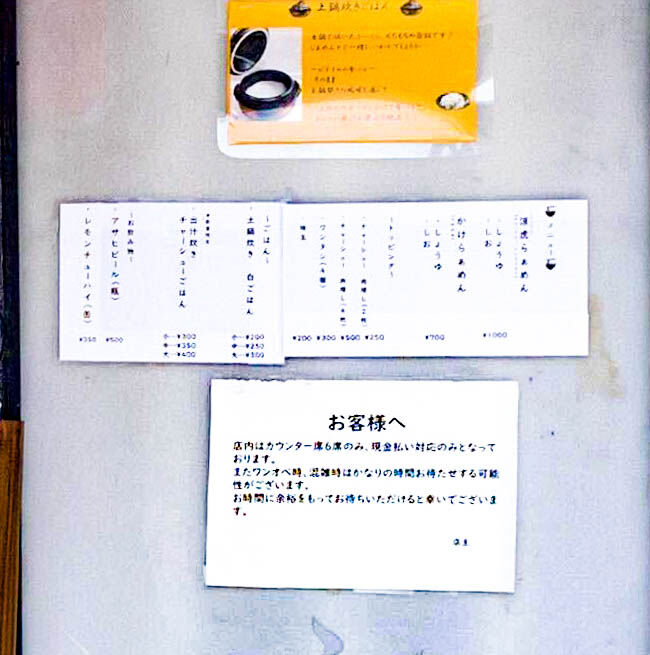 土鍋炊きごはん
メニュー
涼虎らぁめん
・しょうゆ
・しお
¥1000
かけらぁめん
・しょうゆ
・しお
¥700
～トッピング～
・チャーシュー 肉増し(2枚) ¥250
・チャーシュー 肉増し(4枚) ¥500
・ワンタン(4個) ¥300
味玉 ¥200
～ごはん～
・土鍋炊き 白ごはん
小…¥200
中…¥250
大…¥300
・出汁炊き
チャーシューごはん
小…¥300
中…¥350
大…¥400
～お飲み物～
・アサヒビール(瓶) ¥500
・レモンチューハイ(缶) ¥350
お客様へ
店内はカウンター席6席のみ、現金払い対応のみとなって
おります。
またワンオペ時、混雑時はかなりの時間お待たせする可能
性がございます。
お時間に余裕をもってお待ちいただけると幸いでございま
す。
店主